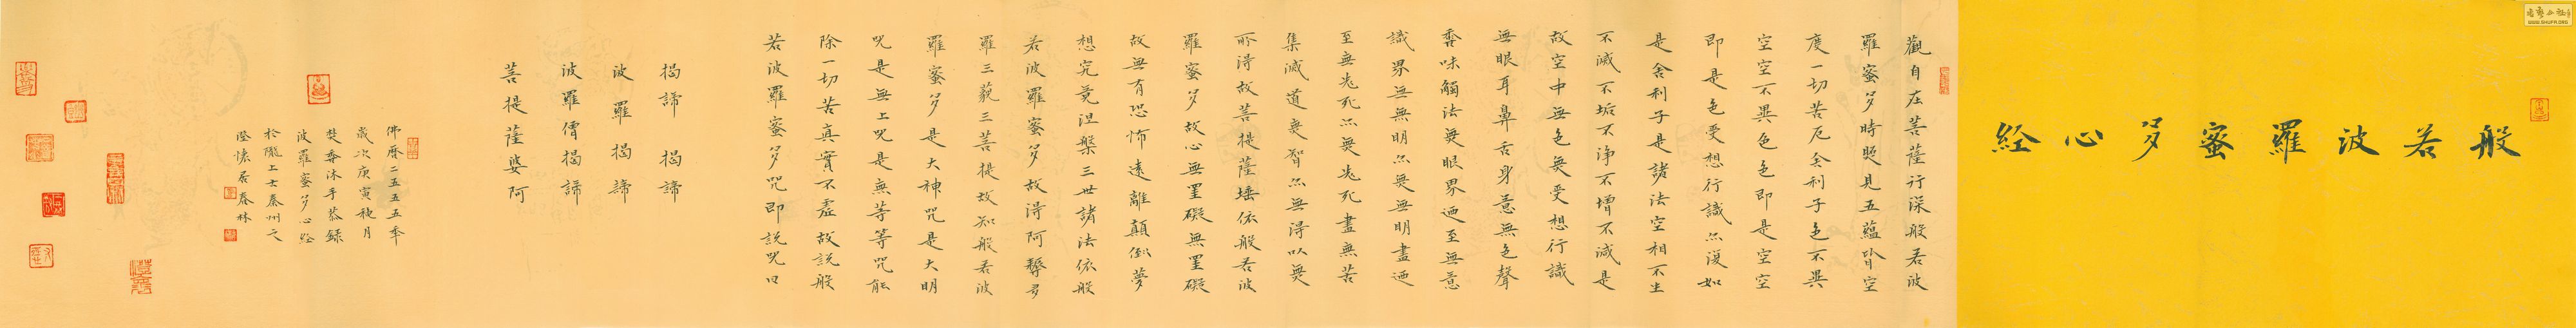 般若波羅蜜多心経
觀自在菩薩行深般若波
羅蜜多時照見五蘊皆空
度一切苦厄舍利子色不異
空空不異色色即是空空
即是色受想行識亦復如
是舍利子是諸法空相不生
不滅不垢不淨不增不減是
故空中無色無受想行識
無眼耳鼻舌身意無色聲
香味觸法無眼界迺至無意
識界無無明亦無無明盡迺
至無老死亦無老死盡無苦
集滅道無智亦無得以無
所得故菩提薩埵依般若波
羅蜜多故心無罣礙無罣礙
故無有恐怖遠離顛倒夢
想究竟涅槃三世諸佛依般
若波羅蜜多故得阿耨多
羅三藐三菩提故知般若波
羅蜜多是大神咒是大明
咒是無上咒是無等等咒能
除一切苦真實不虛故說般
若波羅蜜多咒即說咒曰
揭諦 揭諦
波羅揭諦
波羅僧揭諦
菩提薩婆訶
佛曆二五五五年
歲次庚寅秋月
焚香沐手恭錄
波羅蜜多心経
於隴上士秦州之
澄懷居春林
WWW.SHUFA.ORG